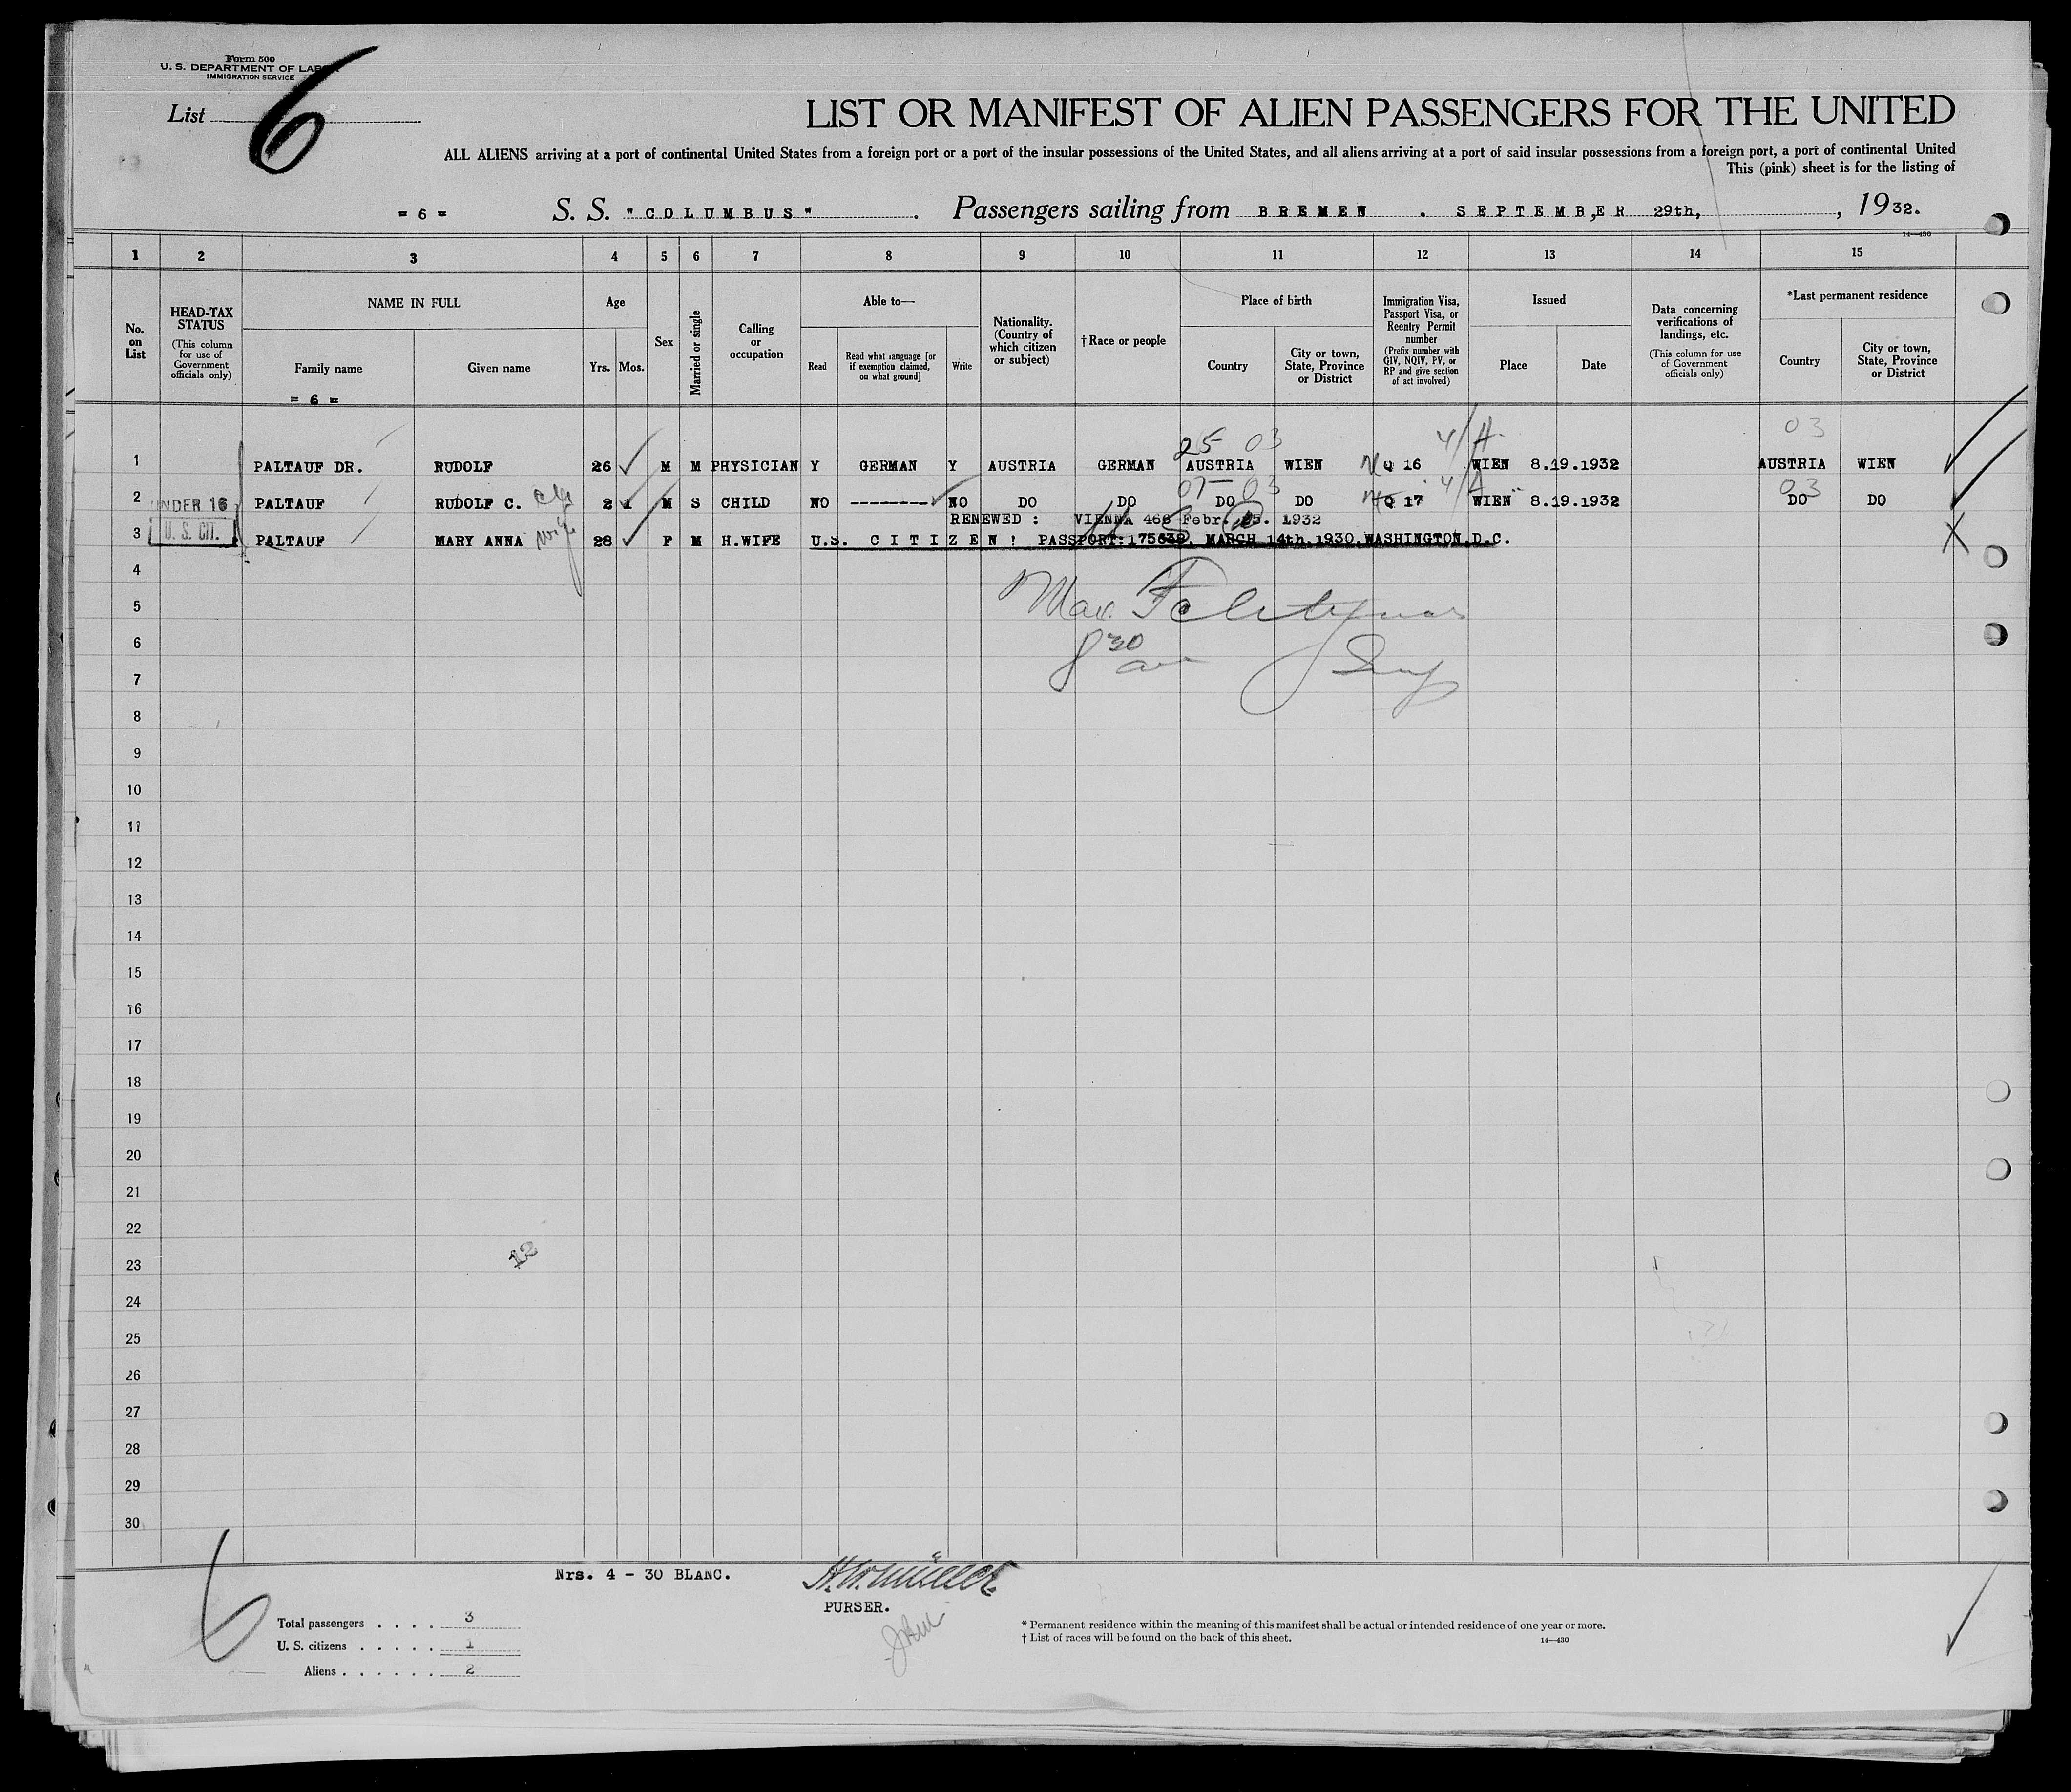 Form 500
U. S. DEPARTMENT OF LABOR
IMMIGRATION SERVICE
List 6
LIST OR MANIFEST OF ALIEN PASSENGERS FOR THE UNITED
ALL ALIENS arriving at a port of continental United States from a foreign port or a port of the insular possessions of the United States, and all aliens arriving at a port of said insular possessions from a foreign port, a port of continental United
This (pink) sheet is for the listing of
= 6 = S. S. "COLUMBUS". Passengers sailing from BREMEN . SEPTEMBER 29th, , 1932.
14—430
1 2 3 4 5 6 7 8 9 10 11 12 13 14 15
No. on List
HEAD-TAX STATUS (This column for use of Government officials only)
NAME IN FULL
Family name Given name
= 6 =
Age
Yrs. Mos.
Sex
Married or single
Calling or occupation
Able to—
Read
Read what language [or if exemption claimed, on what ground]
Write
Nationality. (Country of which citizen or subject)
†Race or people
Place of birth
Country
City or town, State, Province or District
Immigration Visa, Passport Visa, or Reentry Permit number (Prefix number with QIV, NQIV, PV, or RP and give section of act involved)
Issued
Place Date
Data concerning verifications of landings, etc. (This column for use of Government officials only)
*Last permanent residence
Country
City or town, State, Province or District
25 03 4/A 03
1 PALTAUF DR. RUDOLF 26 M M PHYSICIAN Y GERMAN Y AUSTRIA GERMAN AUSTRIA WIEN NQ 16 WIEN 8.19.1932 AUSTRIA WIEN
07 03 4/A 03
2 UNDER 16 PALTAUF RUDOLF C. 2 1 M S CHILD NO -------- NO DO DO DO DO Q 17 WIEN 8.19.1932 DO DO
RENEWED : VIENNA 466 Febr. 1932
3 U. S. CIT. PALTAUF MARY ANNA wife 28 F M H.WIFE U.S. CITIZEN! PASSPORT: MARCH 14th, 1930, WASHINGTON, D.C.
4
5
6 8 30
7
8
9
10
11
12
13
14
15
16
17
18
19
20
21
22
12
23
24
25
26
27
28
29
30
6
Nrs. 4 - 30 BLANC.
PURSER.
Total passengers . . . . 3
U. S. citizens . . . . . 1
Aliens . . . . . . 2
* Permanent residence within the meaning of this manifest shall be actual or intended residence of one year or more.
† List of races will be found on the back of this sheet.
14—430